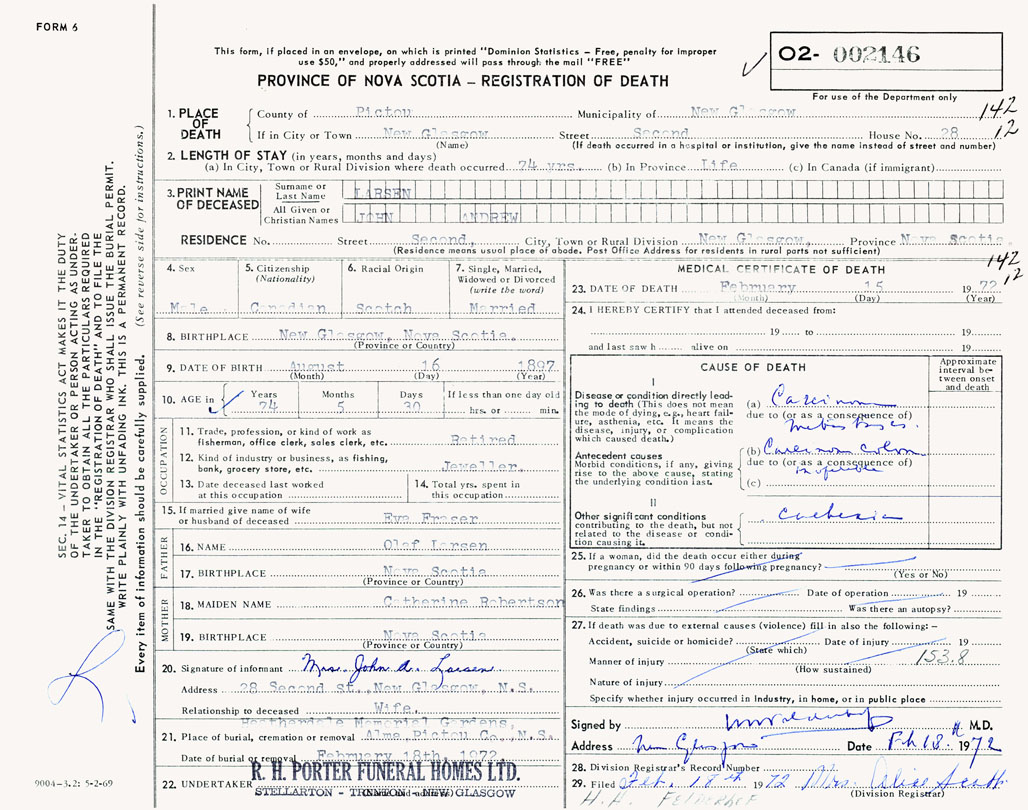 FORM 6
This form, if placed in an envelope, on which is printed "Dominion Statistics – Free, penalty for improper
use $50," and properly addressed will pass through the mail "FREE"
PROVINCE OF NOVA SCOTIA – REGISTRATION OF DEATH
O2- 002146
For use of the Department only
142
12
1. PLACE OF DEATH
County of Pictou Municipality of New Glasgow
If in City or Town New Glasgow Street Second House No. 28
(Name) (If death occurred in a hospital or institution, give the name instead of street and number)
2. LENGTH OF STAY (in years, months and days)
(a) In City, Town or Rural Division where death occurred 74 yrs. (b) In Province Life (c) In Canada (if immigrant)
3. PRINT NAME OF DECEASED
Surname or Last Name LARSEN
All Given or Christian Names JOHN ANDREW
RESIDENCE No. Street Second, City, Town or Rural Division New Glasgow, Province Nova Scotia,
(Residence means usual place of abode. Post Office Address for residents in rural parts not sufficient)
142
12
4. Sex
Male
5. Citizenship
(Nationality)
Canadian
6. Racial Origin
Scotch
7. Single, Married,
Widowed or Divorced
(write the word)
Married
8. BIRTHPLACE New Glasgow, Nova Scotia.
(Province or Country)
9. DATE OF BIRTH August 16 1897
(Month) (Day) (Year)
10. AGE in Years Months Days If less than one day old
74 5 30 hrs. or min.
OCCUPATION
11. Trade, profession, or kind of work as
fisherman, office clerk, sales clerk, etc. Retired
12. Kind of industry or business, as fishing,
bank, grocery store, etc. Jeweller.
13. Date deceased last worked
at this occupation
14. Total yrs. spent in
this occupation
15. If married give name of wife
or husband of deceased Eva Fraser
FATHER
16. NAME Olaf Larsen
17. BIRTHPLACE Nova Scotia
(Province or Country)
MOTHER
18. MAIDEN NAME Catherine Robertson
19. BIRTHPLACE Nova Scotia
(Province or Country)
20. Signature of informant Mrs. John A. Larsen
Address 28 Second St., New Glasgow, N.S.
Relationship to deceased Wife.
Heatherdale Memorial Gardens,
21. Place of burial, cremation or removal Alma Pictou Co., N.S.
Date of burial or removal February 18th 1972
22. UNDERTAKER R. H. PORTER FUNERAL HOMES LTD.
STELLARTON - TRENTON - NEW GLASGOW
MEDICAL CERTIFICATE OF DEATH
23. DATE OF DEATH February 15 1972
(Month) (Day) (Year)
24. I HEREBY CERTIFY that I attended deceased from:
19 to 19
and last saw h alive on 19
CAUSE OF DEATH
Approximate interval between onset and death
I
Disease or condition directly lead-
ing to death (This does not mean
the mode of dying, e.g., heart fail-
ure, asthenia, etc. It means the
disease, injury, or complication
which caused death.)
(a) Carcinoma
due to (or as a consequence of)
metastases.
Antecedent causes
Morbid conditions, if any, giving
rise to the above cause, stating
the underlying condition last.
(b) Carcinoma colon
due to (or as a consequence of)
inoperable
(c)
II
Other significant conditions
contributing to the death, but not
related to the disease or condi-
tion causing it.
cachexia
25. If a woman, did the death occur either during
pregnancy or within 90 days following pregnancy?
(Yes or No)
26. Was there a surgical operation? Date of operation 19
State findings Was there an autopsy?
27. If death was due to external causes (violence) fill in also the following: –
Accident, suicide or homicide? Date of injury 19
(State which)
Manner of injury 153.8
(How sustained)
Nature of injury
Specify whether injury occurred in Industry, in home, or in public place
Signed by M.D.
Address New Glasgow Date Feb 18 1972
28. Division Registrar's Record Number
29. Filed Feb. 18th 1972 Mrs. Alice Scott
(Division Registrar)
SEC. 14 – VITAL STATISTICS ACT MAKES IT THE DUTY
OF THE UNDERTAKER OR PERSON ACTING AS UNDER-
TAKER TO OBTAIN ALL THE PARTICULARS REQUIRED
IN THE "REGISTRATION OF DEATH" AND TO FILE THE
SAME WITH THE DIVISION REGISTRAR WHO SHALL ISSUE THE BURIAL PERMIT.
WRITE PLAINLY WITH UNFADING INK. THIS IS A PERMANENT RECORD.
Every item of information should be carefully supplied. (See reverse side for instructions.)
9004–3.2: 5-2-69